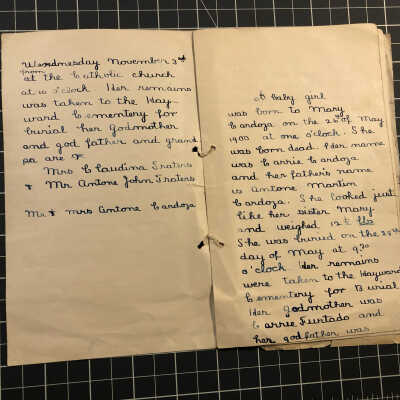 Wednesday November 3rd
from
at the Catholic church
at 10 o'clock Her remains
was taken to the Hay-
ward Cementery for
burial her Godmother
and god father and grand
pa are
Mrs Claudina Fraters
+ Mr Antone John Fraters
Mr. + Mrs Antone Cardoza
A baby girl
was born to Mary
Cardoza on the 26 of May
1900 at one o'clock. She
was born dead. Her name
was Carrie Cardoza
and her father's name
is Antone Martin
Cardoza. She looked just
like her sister Mary
and weighed 12½ lbs
She was buried on the 28th
day of May at 9:30
o'clock Her remains
were taken to the Hayward
Cementery for Burial
Her godmother was
Carrie Furtado and
her god father was